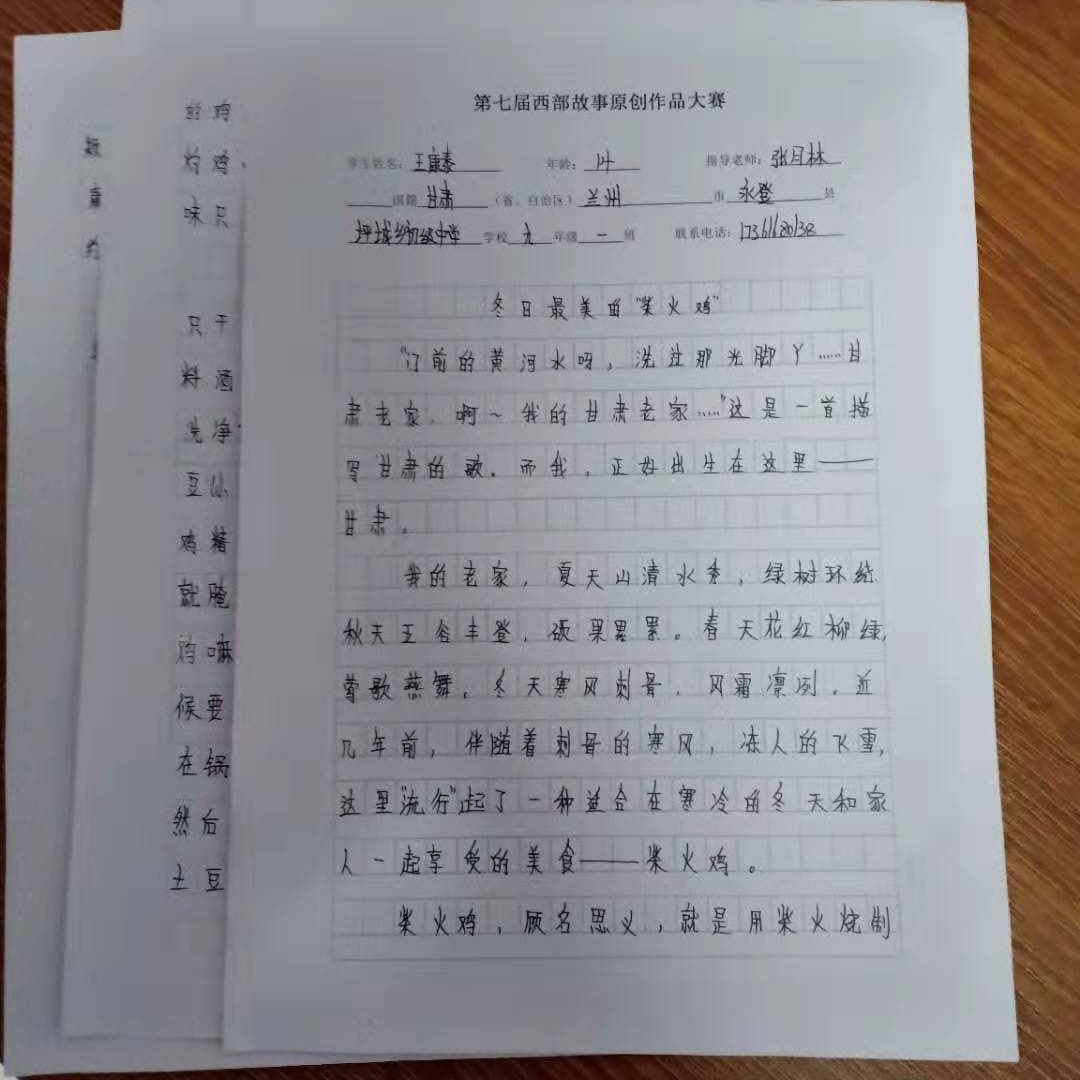 第七届西部故事原创作品大赛
学生姓名：王康泰 年龄：14 指导老师：张月林
国籍 甘肃 （省、自治区） 兰州 市 永登 县
坪城乡初级中学 学校 九 年级 一 班 联系电话：
冬日最美的“柴火鸡”
“门前的黄河水呀，洗过那光脚丫……甘
肃老家，啊～我的甘肃老家……”这是一首描
写甘肃的歌。而我，正好出生在这里——
甘肃。
我的老家，夏天山清水秀，绿树环绕
秋天五谷丰登，硕果累累。春天花红柳绿，
莺歌燕舞。冬天寒风刺骨，风霜凛冽。近
几年前，伴随着刺骨的寒风，冻人的飞雪，
这里“流行”起了一种适合在寒冷的冬天和家
人一起享受的美食——柴火鸡。
柴火鸡，顾名思义，就是用柴火烧制
鸡
灼鸡
味只
只干
料酒
洗净
豆
鸡精
就腌
鸡嘛
候要
在锅
然后
土豆